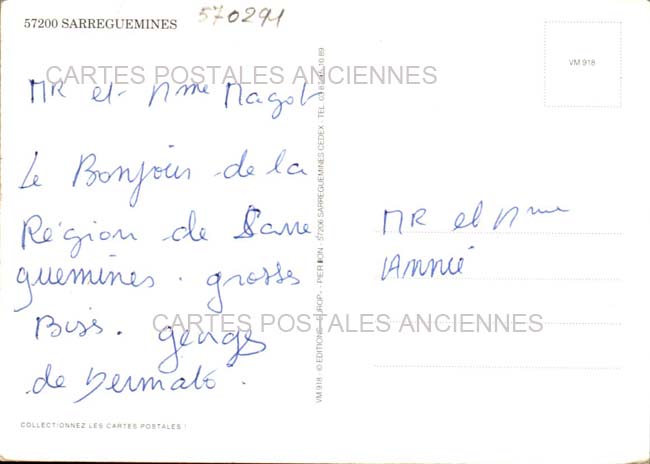 57200 SARREGUEMINES
570291
CARTES POSTALES ANCIENNES
MR et Mme Magot
Le Bonjour de la
Région de Sarre
guemines. grosses
Bises. georges
de Dermato.
MR et Mme
CARTES POSTALES ANCIENNES
COLLECTIONNEZ LES CARTES POSTALES !
VM 918 - © EDITIONS EUROP - PIERRON - 57206 SARREGUEMINES CEDEX - TEL.
VM 918